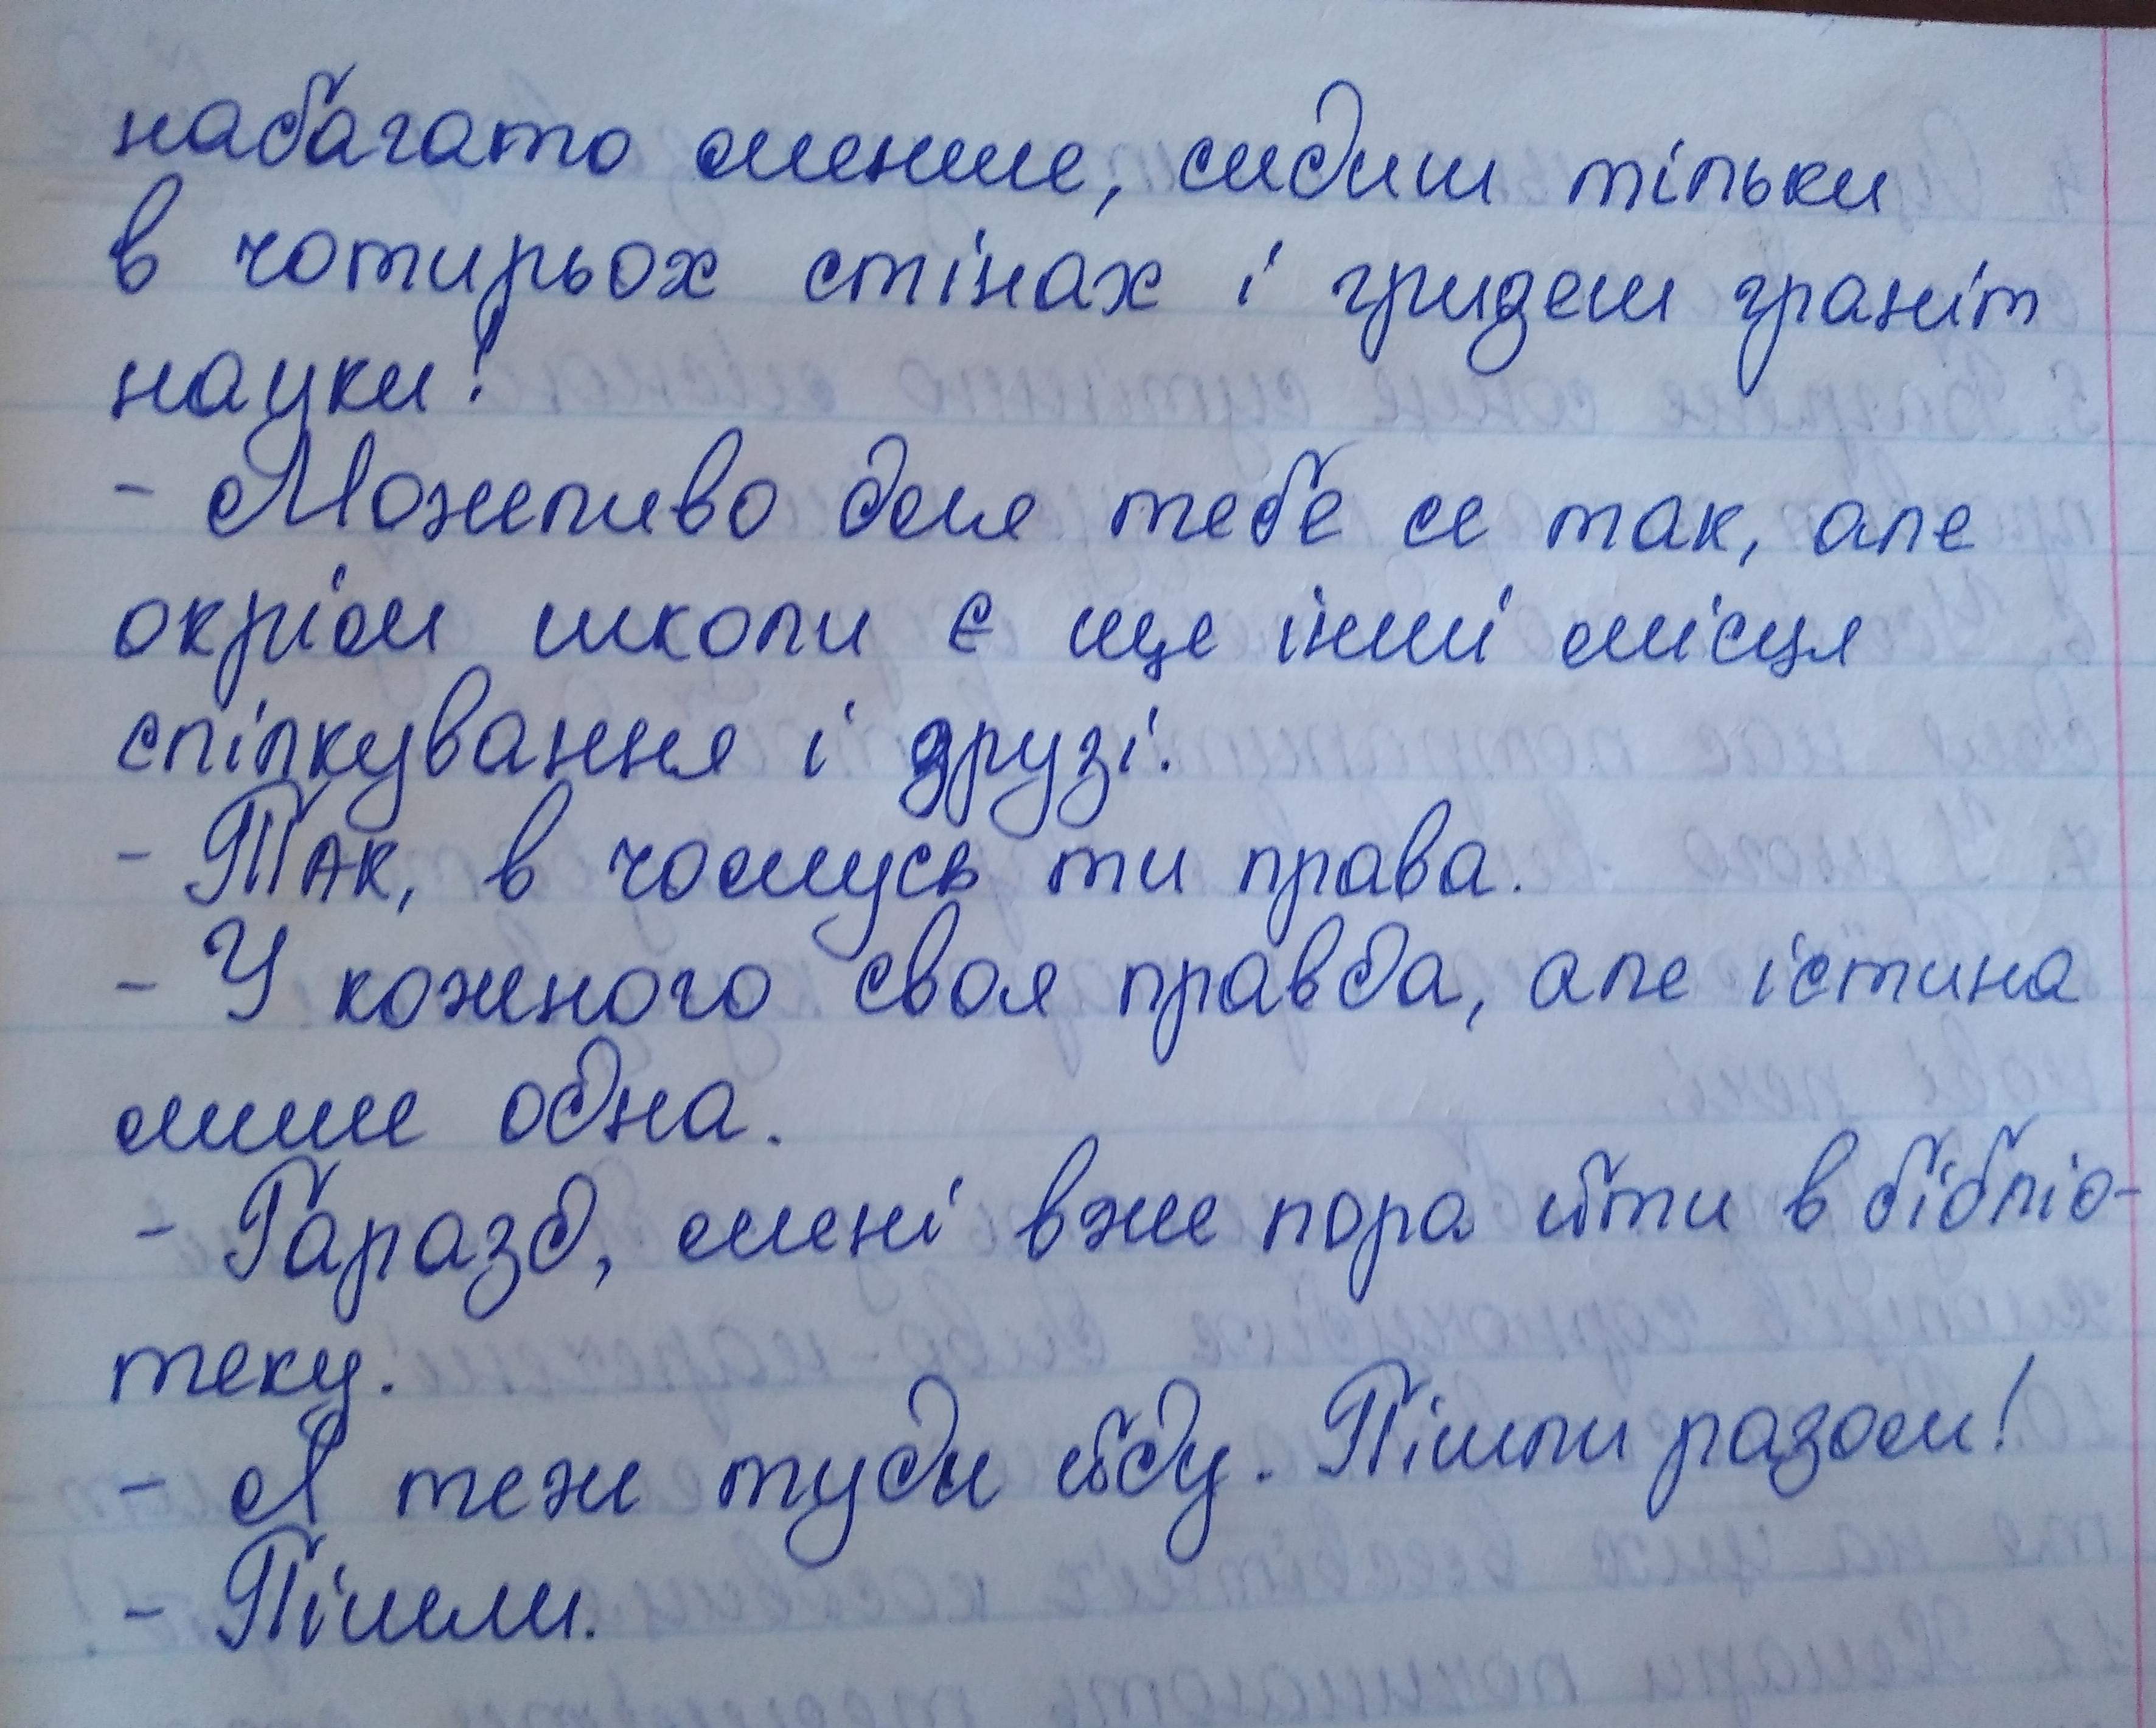 набагато менше, сидиш тільки
в чотирьох стінах і гризеш граніт
науки!
- Можливо для тебе се так, але
окрім школи є ще інші місця
спілкування і друзі.
- Так, в чомусь ти права.
- У кожного своя правда, але істина
лише одна.
- Гаразд, мені вже пора йти в бібліо-
теку.
- Я теж туди йду. Пішли разом!
- Пішли.